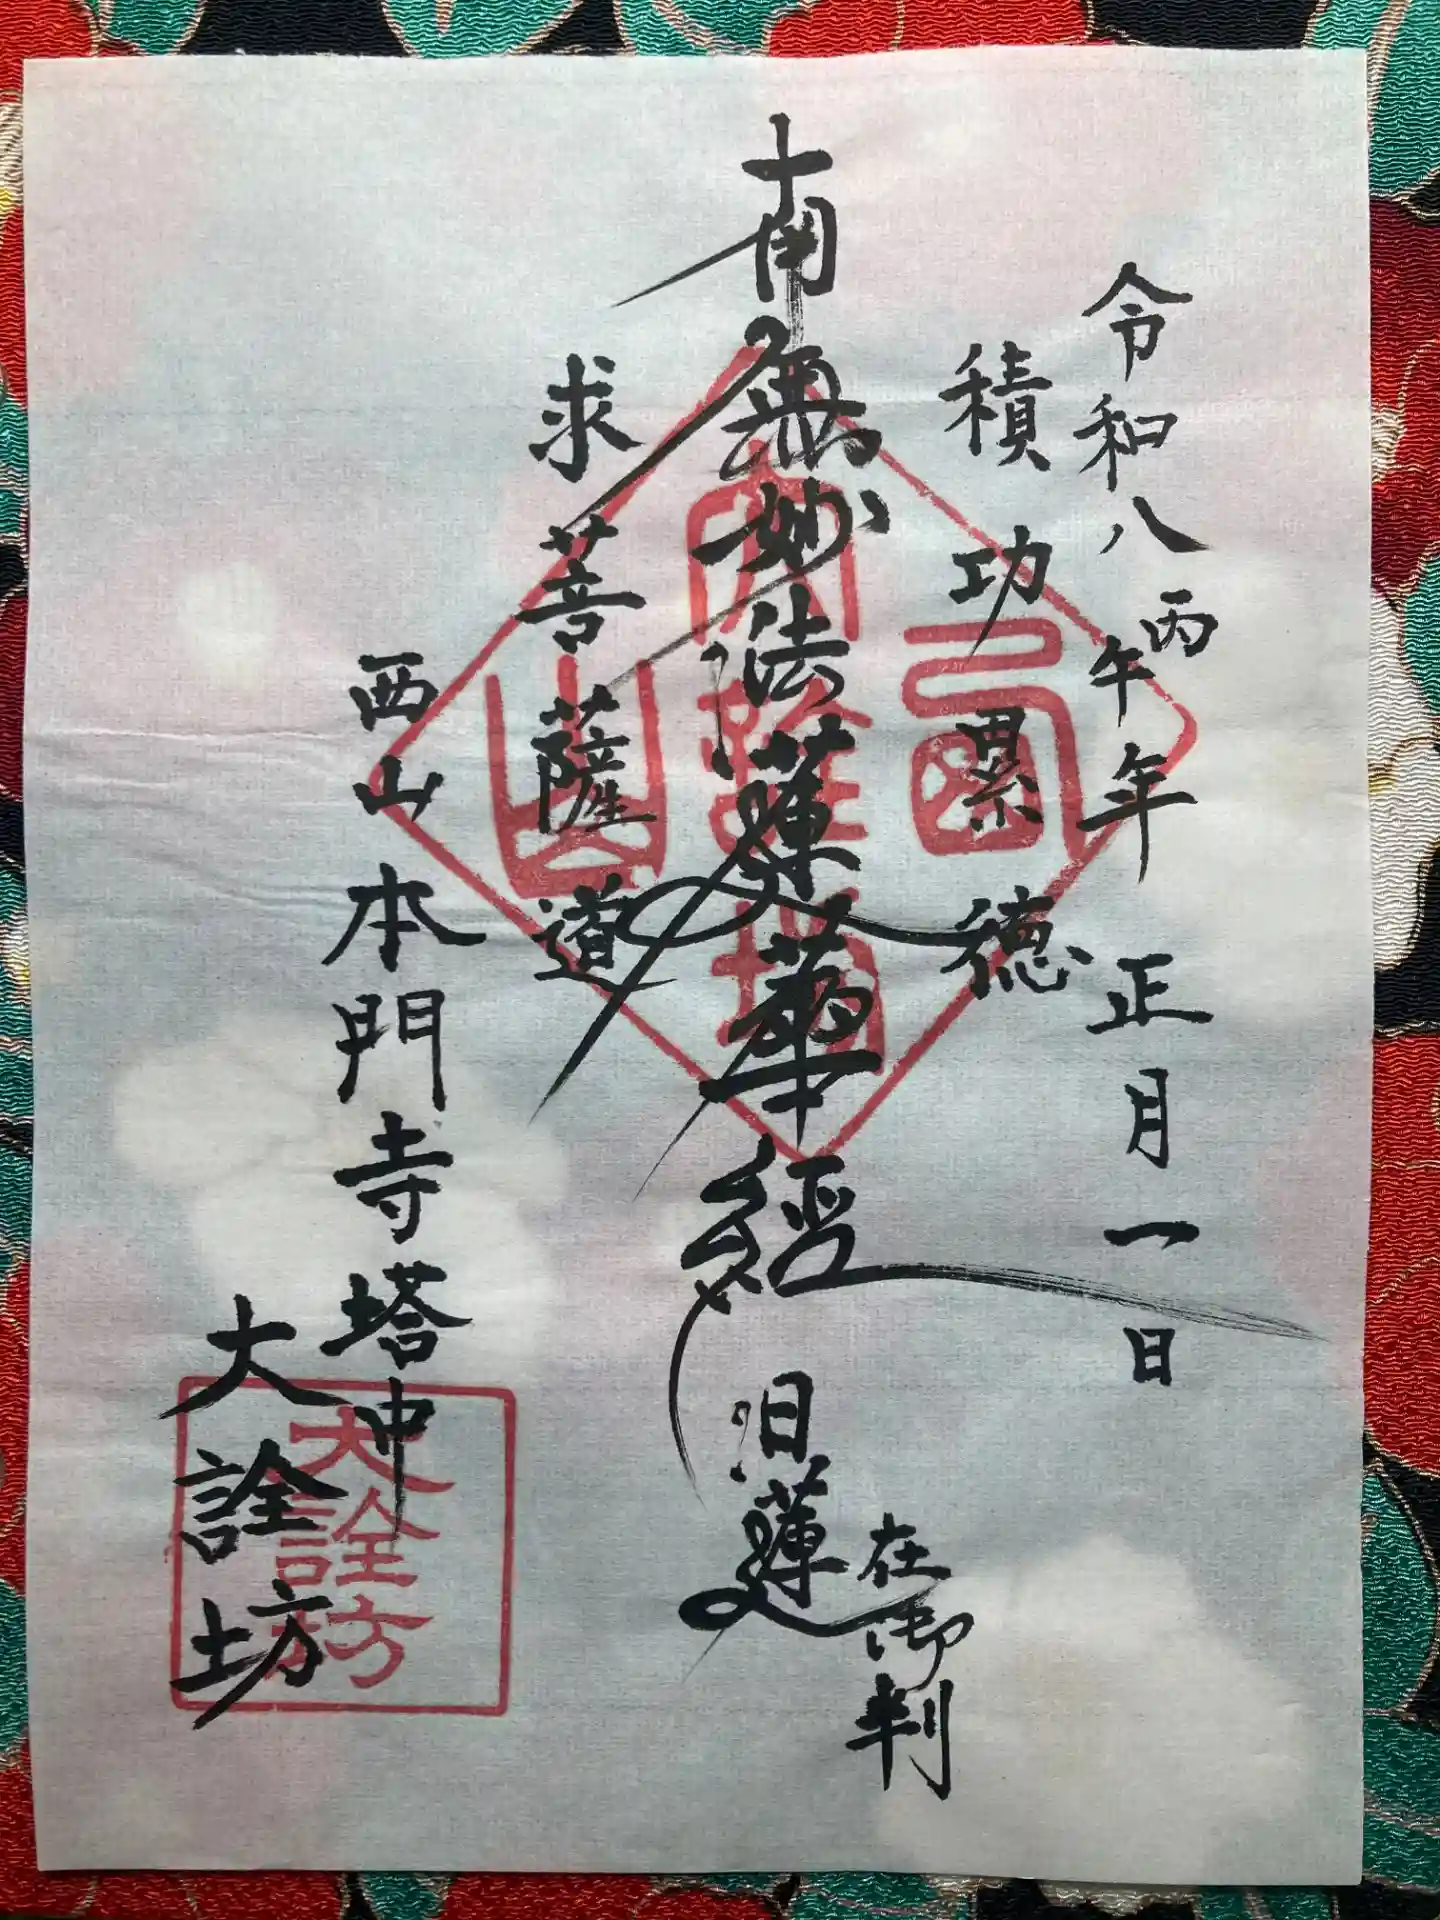 令和八丙午年 正月一日
積功累德
南無妙法蓮華經 日蓮 在御判
求菩薩道
西山本門寺塔中
大詮坊
大詮坊